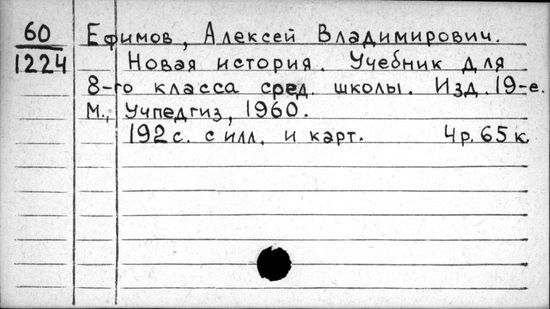 60
1224
Ефимов, Алексей Владимирович.
Новая история. Учебник для
8-го класса сред. школы. Изд. 19-е.
М., Учпедгиз, 1960.
192 с. с илл. и карт. 4 р. 65 к.